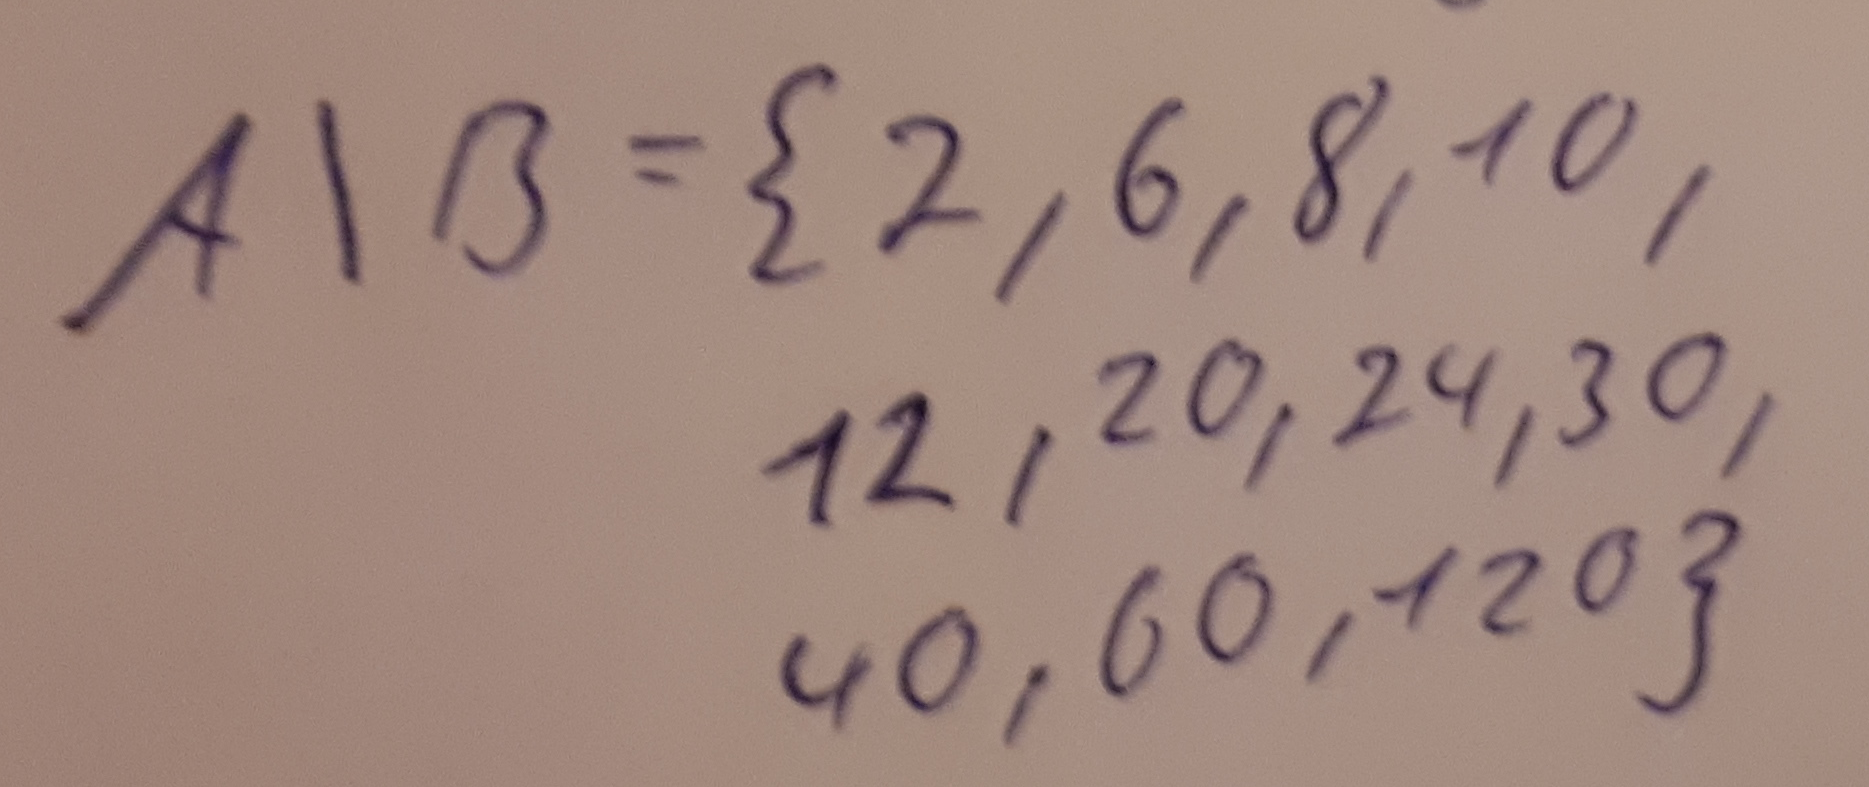 A \ B = {2, 6, 8, 10,
12, 20, 24, 30,
40, 60, 120}